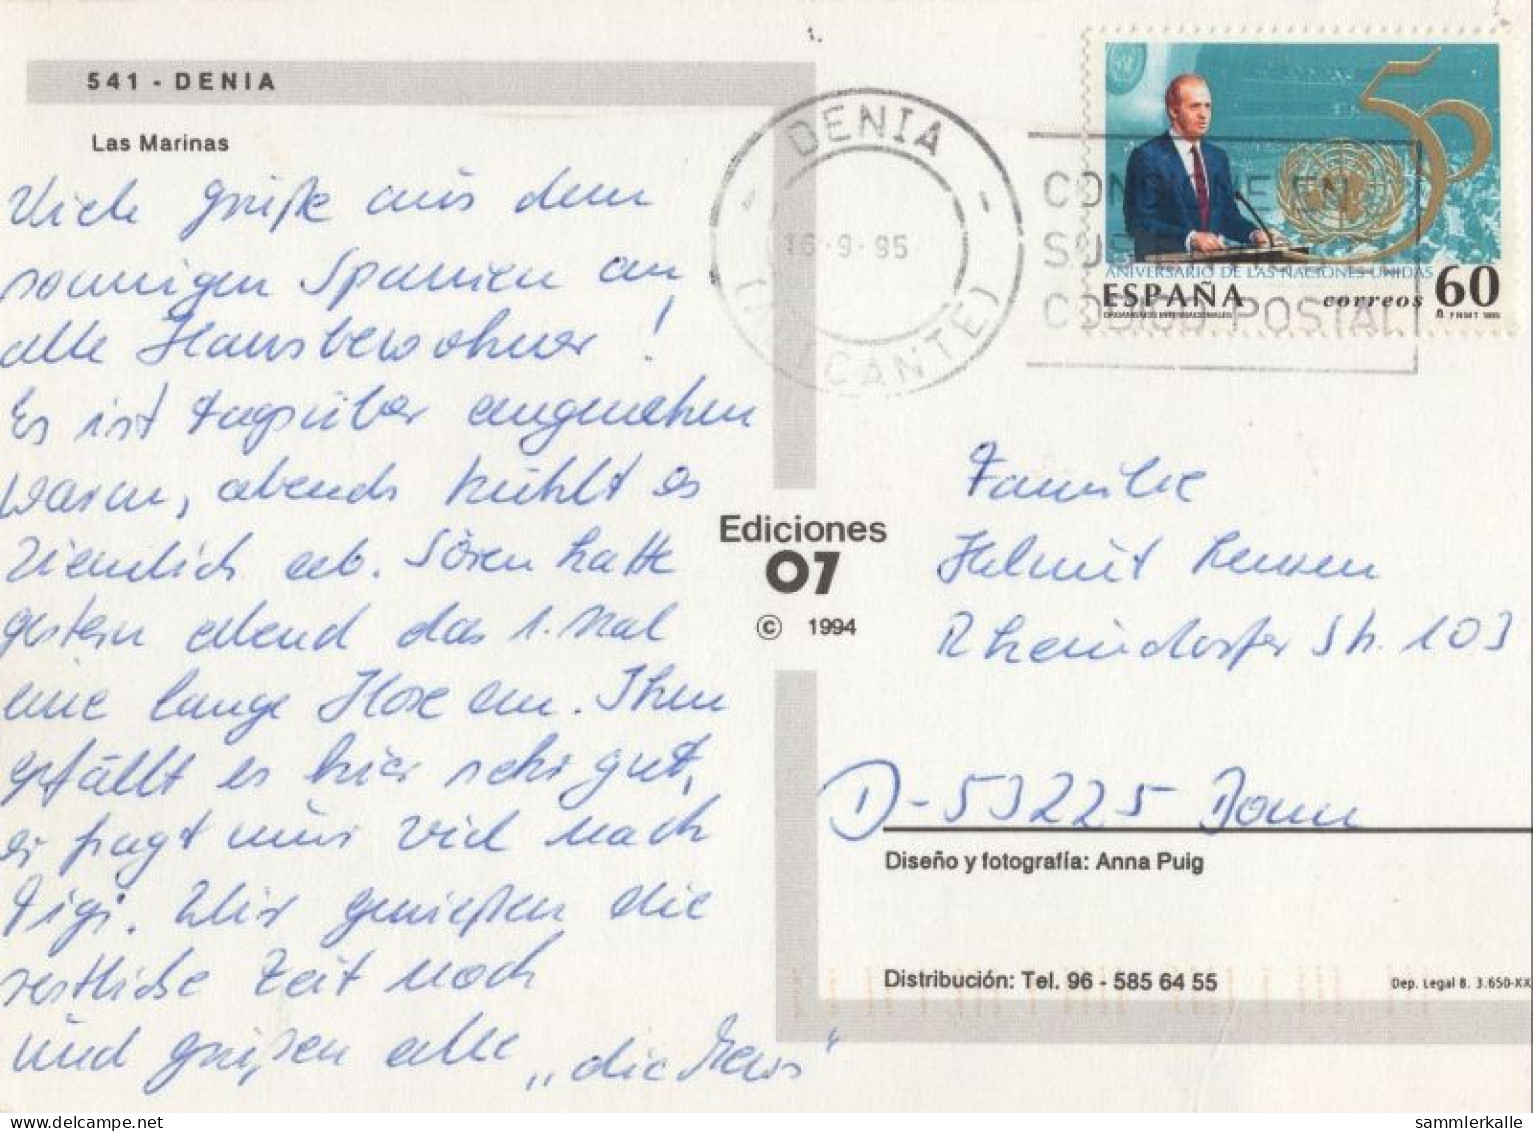 541 - DENIA
Las Marinas
Viele Grüße aus dem
sonnigen Spanien an
alle Hausbewohner!
Es ist tagsüber angenehm
warm, abends kühlt es
ziemlich ab. Sören hatte
gestern abend das 1. Mal
eine lange Hose an. Ihm
gefällt es hier sehr gut,
er fragt nur viel nach
Gigi. Wir genießen die
restliche Zeit noch
und grüßen alle „die
Ediciones
07
© 1994
DENIA
16-9-95
(ALICANTE)
CONSIGNE EN
SUS ENVIOS
CODIGO POSTAL
50
ANIVERSARIO DE LAS NACIONES UNIDAS
ESPAÑA correos 60
ORGANISMOS INTERNACIONALES F N M T 1995
Familie
Helmut
Rheindorfer Str. 103
D-53225 Bonn
Diseño y fotografía: Anna Puig
Distribución: Tel. 96 - 585 64 55
Dep. Legal B. 3.650-XX
sammlerkalle